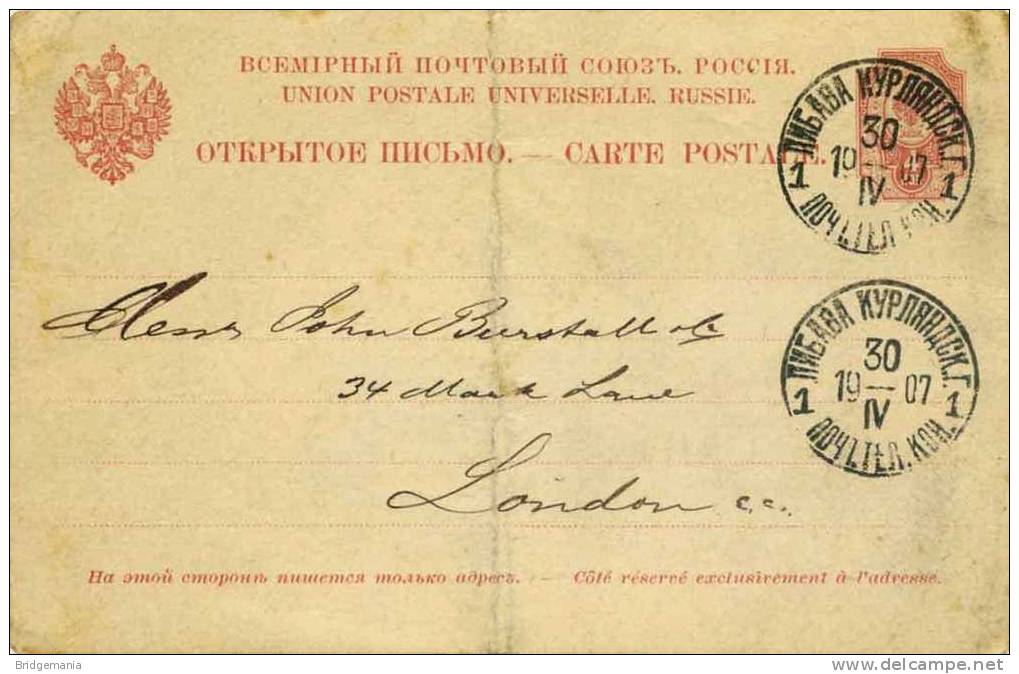 ВСЕМІРНЫЙ ПОЧТОВЫЙ СОЮЗЪ. РОССІЯ.
UNION POSTALE UNIVERSELLE. RUSSIE.
ОТКРЫТОЕ ПИСЬМО. — CARTE POSTALE.
ЛИБАВА КУРЛЯНДСК.Г.
30
19 — 07
IV
1 1
ПОЧ.ТЕЛ.КОН.
Messrs John Burstall & Co
34 Mark Lane
London
ЛИБАВА КУРЛЯНДСК.Г.
30
19 — 07
IV
1 1
ПОЧ.ТЕЛ.КОН.
На этой сторонѣ пишется только адресъ. — Côté réservé exclusivement à l'adresse.
Bridgemania
delcampe.net